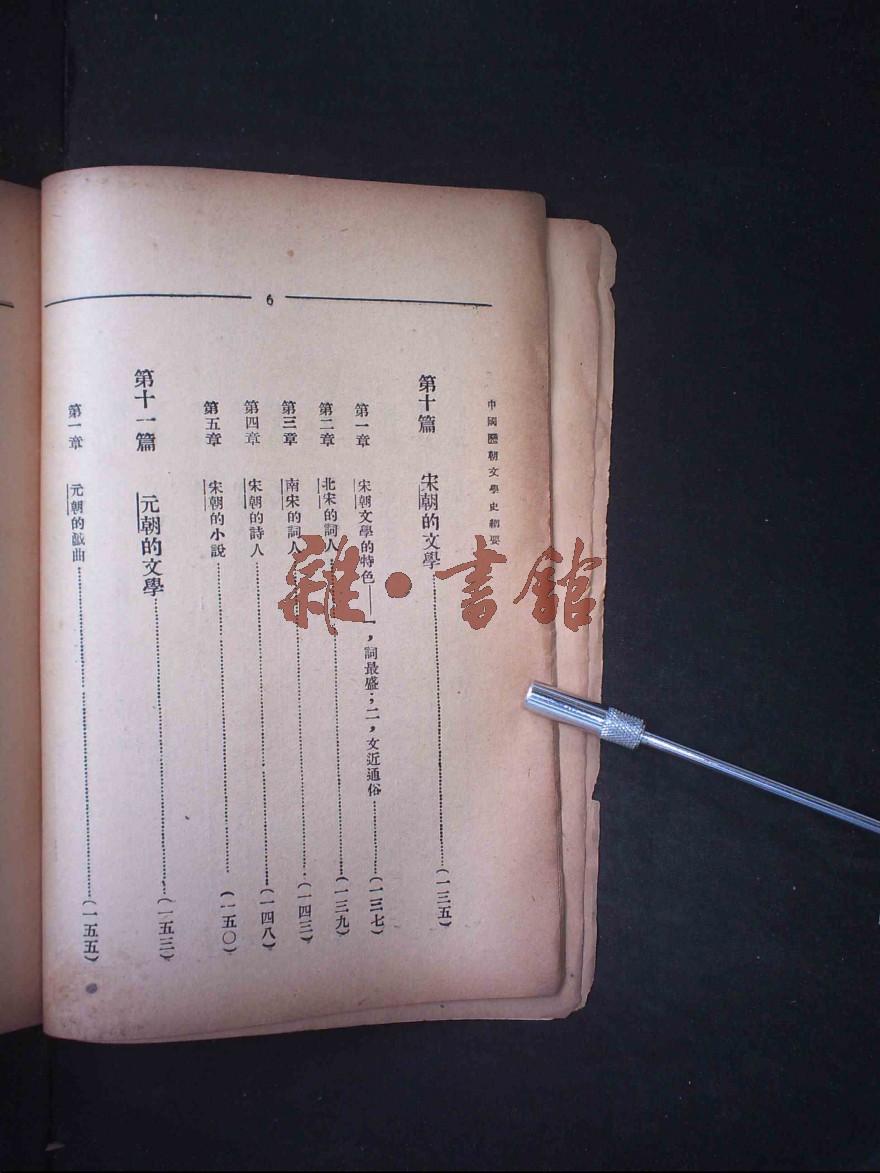 6
中國歷朝文學史綱要
第十篇　宋朝的文學……………………(一三五)
第一章　宋朝文學的特色——一，詞最盛；二，文近通俗………(一三七)
第二章　北宋的詞人……………………(一三九)
第三章　南宋的詞人……………………(一四三)
第四章　宋朝的詩人……………………(一四八)
第五章　宋朝的小說……………………(一五〇)
第十一篇　元朝的文學……………………(一五三)
第一章　元朝的戲曲……………………(一五五)
雜·書館